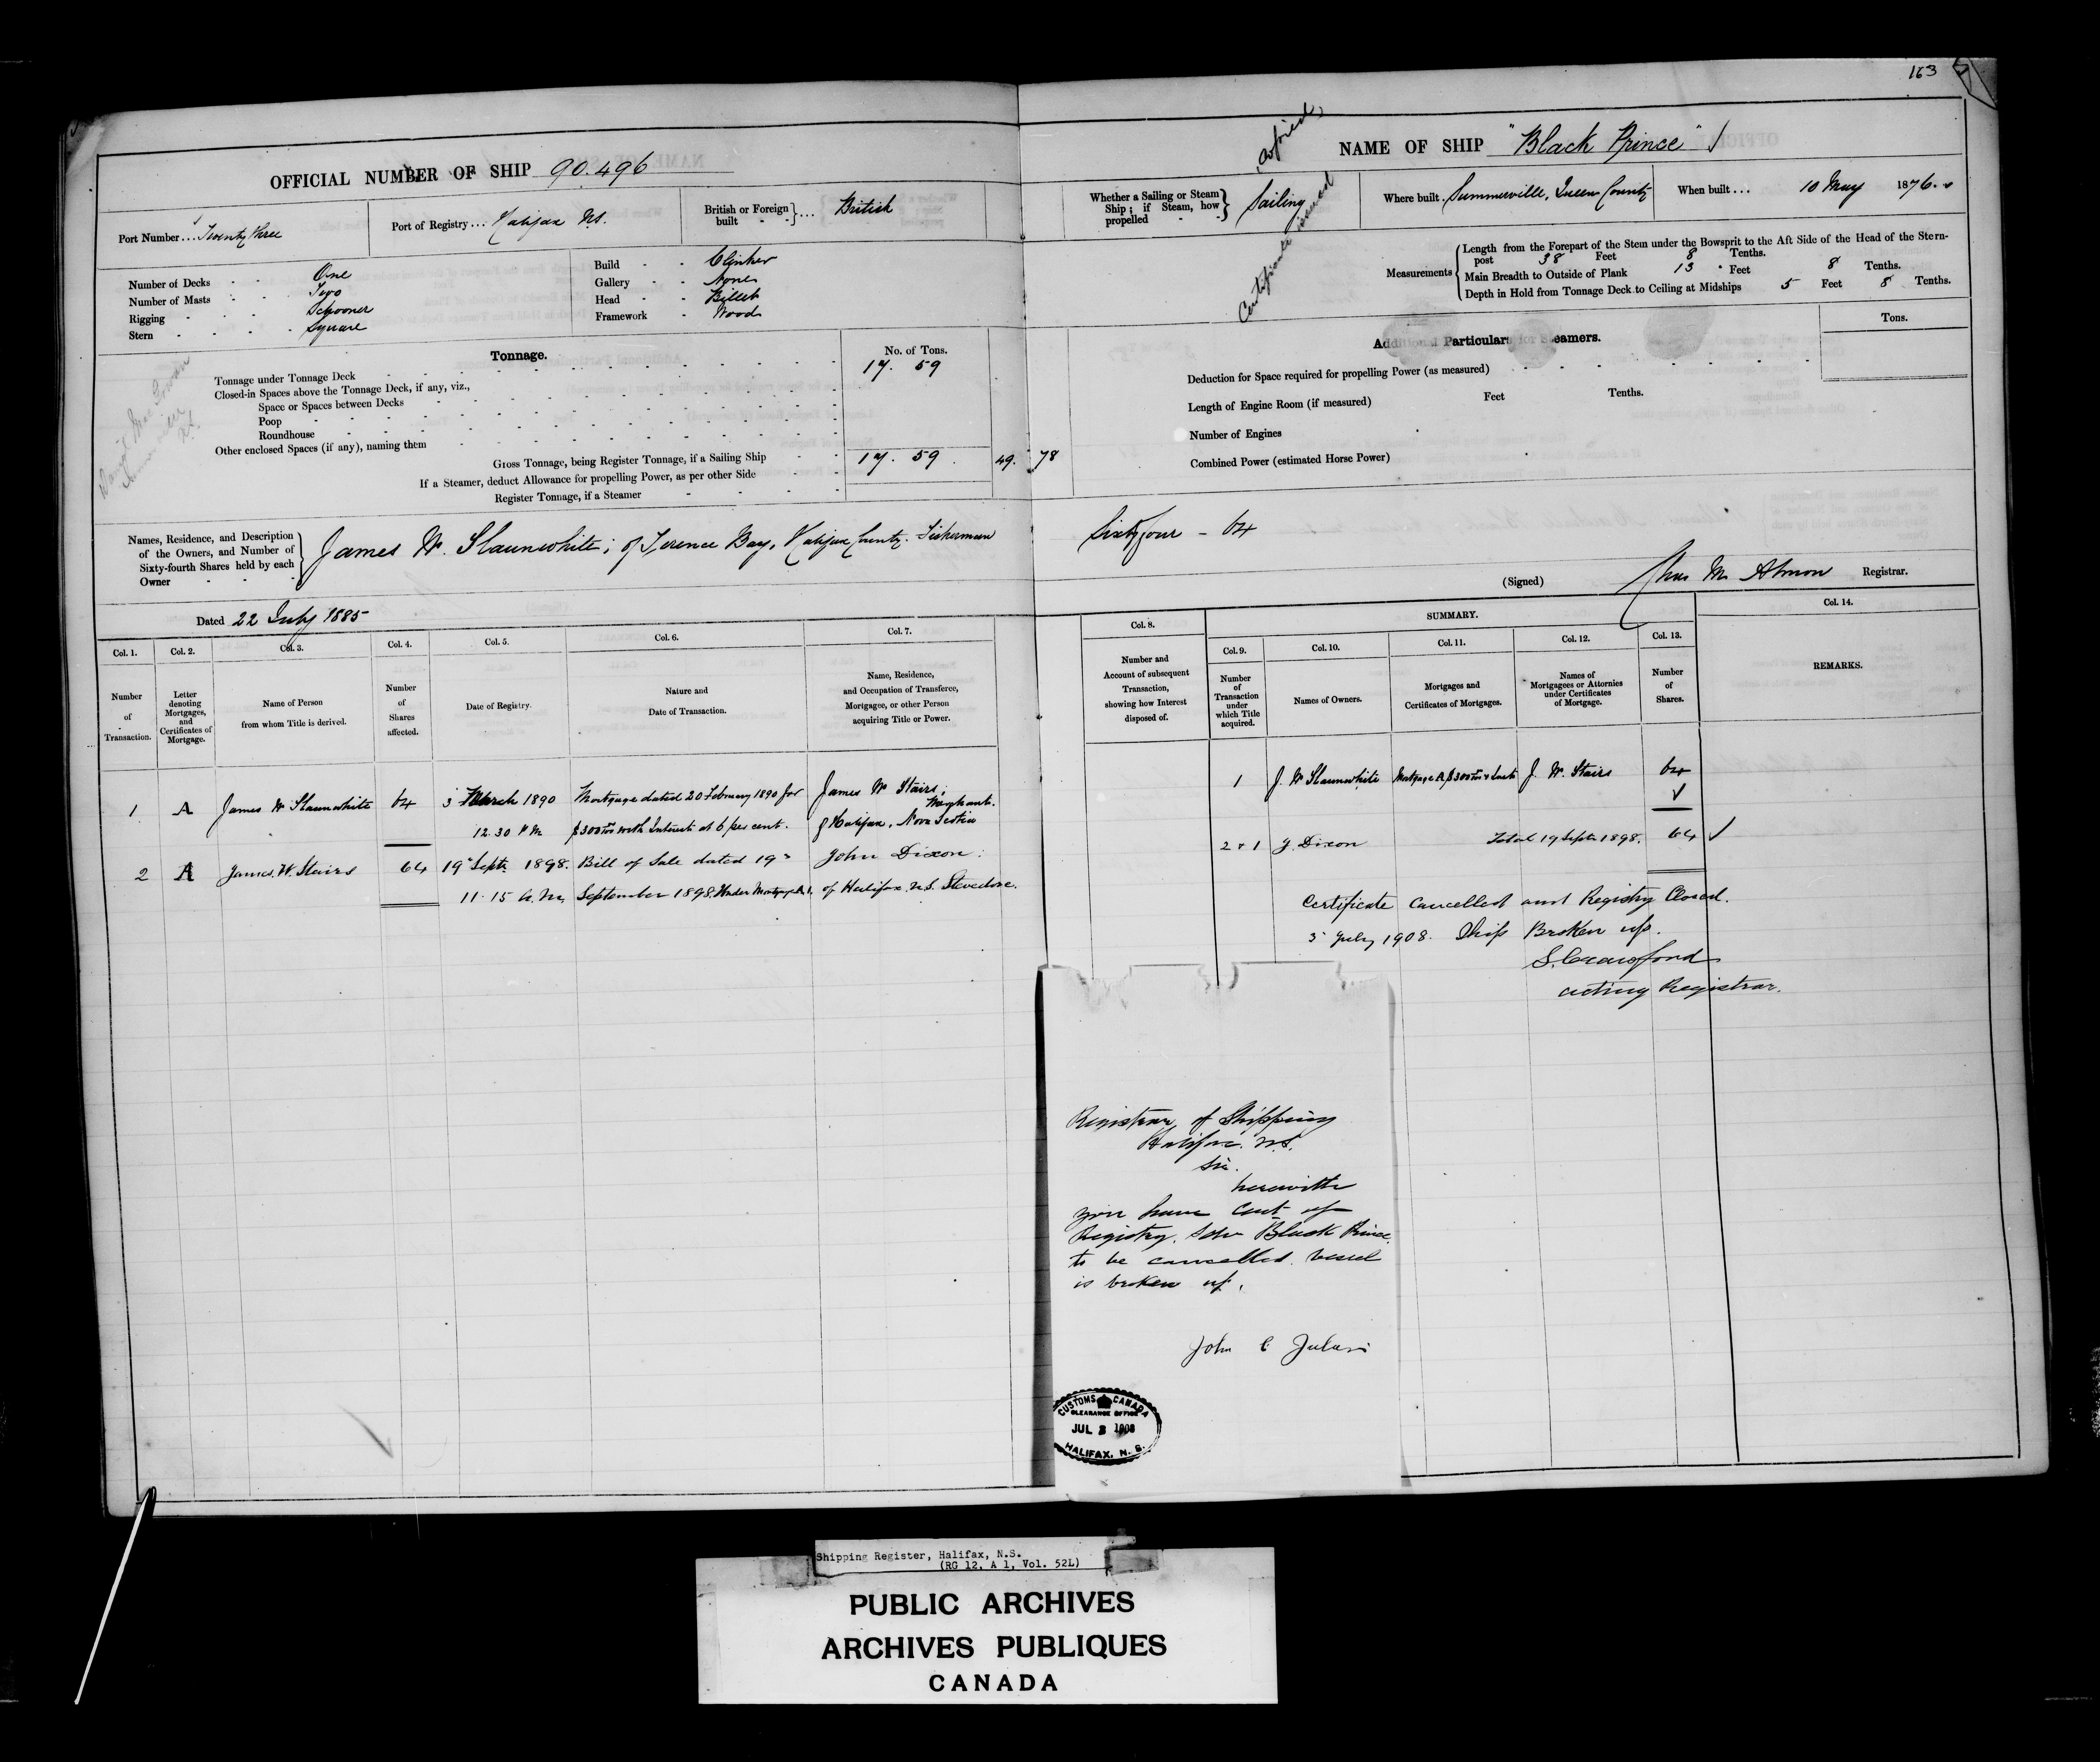 163
OFFICIAL NUMBER OF SHIP 90.496
NAME OF SHIP "Black Prince"
Port Number ... Twenty three
Port of Registry ... Halifax N.S.
British or Foreign built ... British
Whether a Sailing or Steam Ship; if Steam, how propelled Sailing
Where built Summerville, Queen County
When built ... 10 May 1876.
Certificate issued
Number of Decks One
Number of Masts Two
Rigging Schooner
Stern Square
Build Clinker
Gallery None
Head Billet
Framework Wood
Measurements
Length from the Forepart of the Stem under the Bowsprit to the Aft Side of the Head of the Stern-
post 38 Feet 8 Tenths.
Main Breadth to Outside of Plank 13 Feet 8 Tenths.
Depth in Hold from Tonnage Deck to Ceiling at Midships 5 Feet 8 Tenths.
Tonnage.
No. of Tons.
Tonnage under Tonnage Deck 17. 59
Closed-in Spaces above the Tonnage Deck, if any, viz.,
Space or Spaces between Decks
Poop
Roundhouse
Other enclosed Spaces (if any), naming them
Gross Tonnage, being Register Tonnage, if a Sailing Ship 17. 59. 49. 78
If a Steamer, deduct Allowance for propelling Power, as per other Side
Register Tonnage, if a Steamer
Additional Particulars for Steamers.
Tons.
Deduction for Space required for propelling Power (as measured)
Length of Engine Room (if measured) Feet Tenths.
Number of Engines
Combined Power (estimated Horse Power)
Names, Residence, and Description
of the Owners, and Number of
Sixty-fourth Shares held by each
Owner
James W. Slaunwhite; of Terence Bay, Halifax County. Fisherman
Sixty four - 64
(Signed) Chas M. Almon Registrar.
Dated 22 July 1885
SUMMARY.
Col. 1. Col. 2. Col. 3. Col. 4. Col. 5. Col. 6. Col. 7. Col. 8. Col. 9. Col. 10. Col. 11. Col. 12. Col. 13. Col. 14.
Number of Transaction.
Letter denoting Mortgages, and Certificates of Mortgage.
Name of Person from whom Title is derived.
Number of Shares affected.
Date of Registry.
Nature and Date of Transaction.
Name, Residence, and Occupation of Transferee, Mortgagee, or other Person acquiring Title or Power.
Number and Account of subsequent Transaction, showing how Interest disposed of.
Number of Transaction under which Title acquired.
Names of Owners.
Mortgages and Certificates of Mortgages.
Names of Mortgagees or Attornies under Certificates of Mortgage.
Number of Shares.
REMARKS.
1 A James W Slaunwhite 64 3 March 1890 Mortgage dated 20 February 1890 for James W Stairs; Merchant.
12.30 P M $300 with Interest at 6 per cent. of Halifax, Nova Scotia
2 A James W. Stairs 64 19 Sept. 1898. Bill of Sale dated 19 John Dixon:
11.15 a.m. September 1898. Under Mortgage A. of Halifax N.S. Stevedore.
1 J. W Slaunwhite Mortgage A $300 J. W. Stairs 64
2 + 1 J. Dixon Total 19 Septr 1898. 64
Certificate Cancelled and Registry Closed.
3 July 1908. Ship Broken up.
S. Crawford
acting Registrar.
Registrar of Shipping
Halifax. N.S.
Sir.
herewith
you have Cert of
Registry. Schr Black Prince.
to be cancelled. vessel
is broken up.
John C
CUSTOMS CANADA
CLEARANCE OFFICE
JUL 3 1908
HALIFAX, N. S.
Shipping Register, Halifax, N.S.
(RG 12, A 1, Vol. 52L)
PUBLIC ARCHIVES
ARCHIVES PUBLIQUES
CANADA